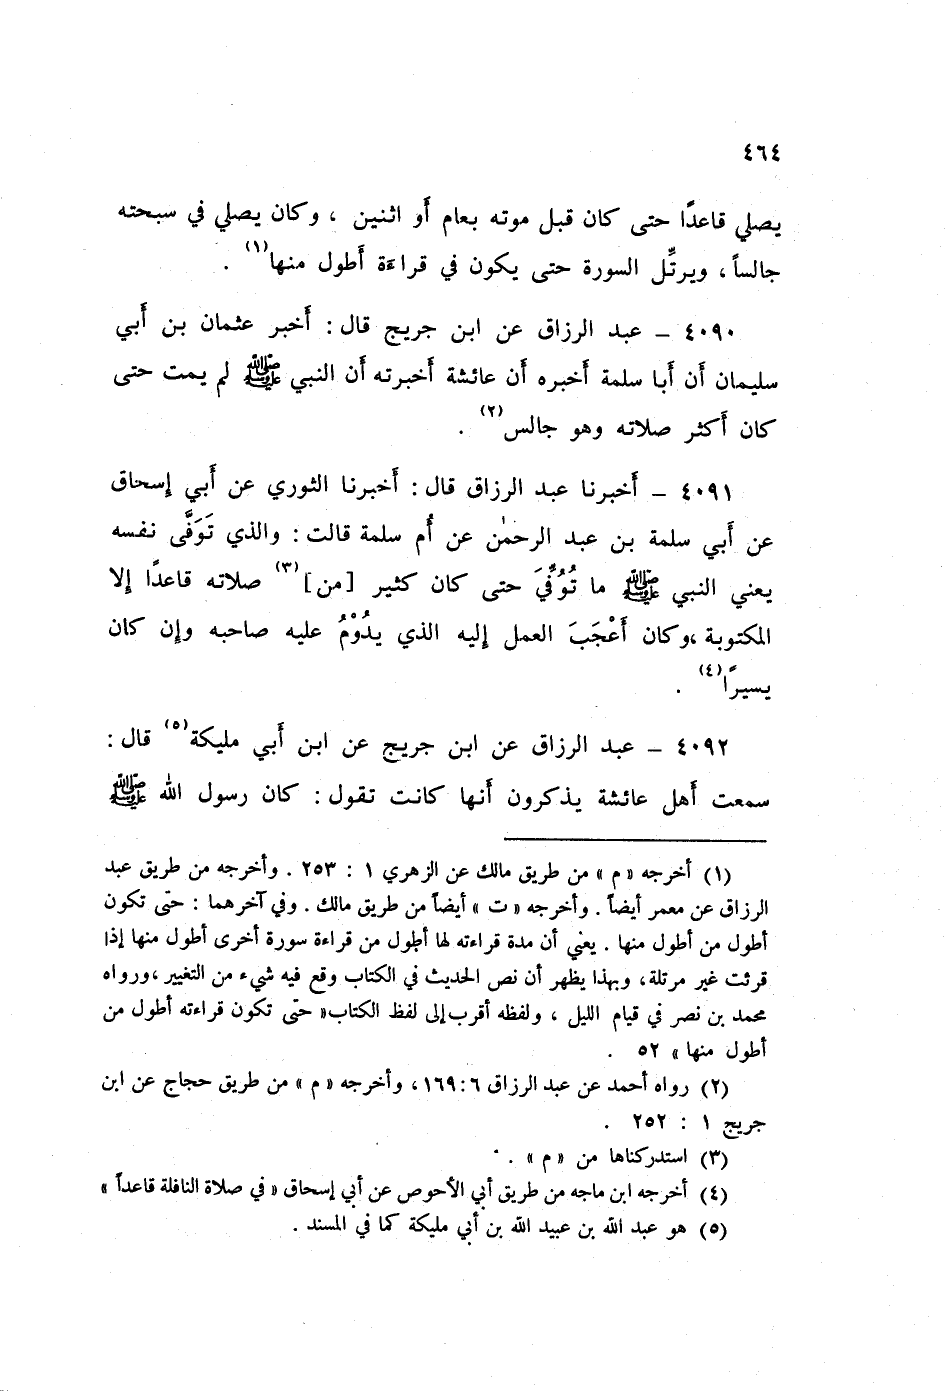 ٤٦٤
يصلي قاعدًا حتى كان قبل موته بعام أَو اثنين ، وكان يصلي في سبحته
جالساً ، ويرتِّل السورة حتى يكون في قراءَة أَطول منها(١) .
٤٠٩٠ – عبد الرزاق عن ابن جريج قال : أَخبر عثمان بن أَبي
سليمان أَن أَبا سلمة أَخبره أَن عائشة أَخبرته أَن النبي ﷺ لم يمت حتى
كان أَكثر صلاته وهو جالس(٢) .
٤٠٩١ – أَخبرنا عبد الرزاق قال : أَخبرنا الثوري عن أَبي إسحاق
عن أَبي سلمة بن عبد الرحمٰن عن أُم سلمة قالت : والذي تَوَفَّى نفسه
يعني النبي ﷺ ما تُوُفِّيَ حتى كان كثير [من](٣) صلاته قاعدًا إلا
المكتوبة ،وكان أَعْجَبَ العمل إليه الذي يدُوْمُ عليه صاحبه وإن كان
يسيرًا(٤) .
٤٠٩٢ – عبد الرزاق عن ابن جريج عن ابن أَبي مليكة(٥) قال :
سمعت أَهل عائشة يذكرون أَنها كانت تقول : كان رسول الله ﷺ
(١) أخرجه « م » من طريق مالك عن الزهري ١ : ٢٥٣ . وأخرجه من طريق عبد
الرزاق عن معمر أيضاً . وأخرجه « ت » أيضاً من طريق مالك . وفي آخرهما : حتى تكون
أطول من أطول منها . يعني أن مدة قراءته لها أطول من قراءة سورة أخرى أطول منها إذا
قرئت غير مرتلة ، وبهذا يظهر أن نص الحديث في الكتاب وقع فيه شيء من التغيير ،ورواه
محمد بن نصر في قيام الليل ، ولفظه أقرب إلى لفظ الكتاب« حتى تكون قراءته أطول من
أطول منها » ٥٢ .
(٢) رواه أحمد عن عبد الرزاق ٦ :١٦٩ ، وأخرجه « م » من طريق حجاج عن ابن
جريج ١ : ٢٥٢ .
(٣) استدركناها من « م » .
(٤) أخرجه ابن ماجه من طريق أبي الأحوص عن أبي إسحاق « في صلاة النافلة قاعداً »
(٥) هو عبد الله بن عبيد الله بن أبي مليكة كما في المسند .